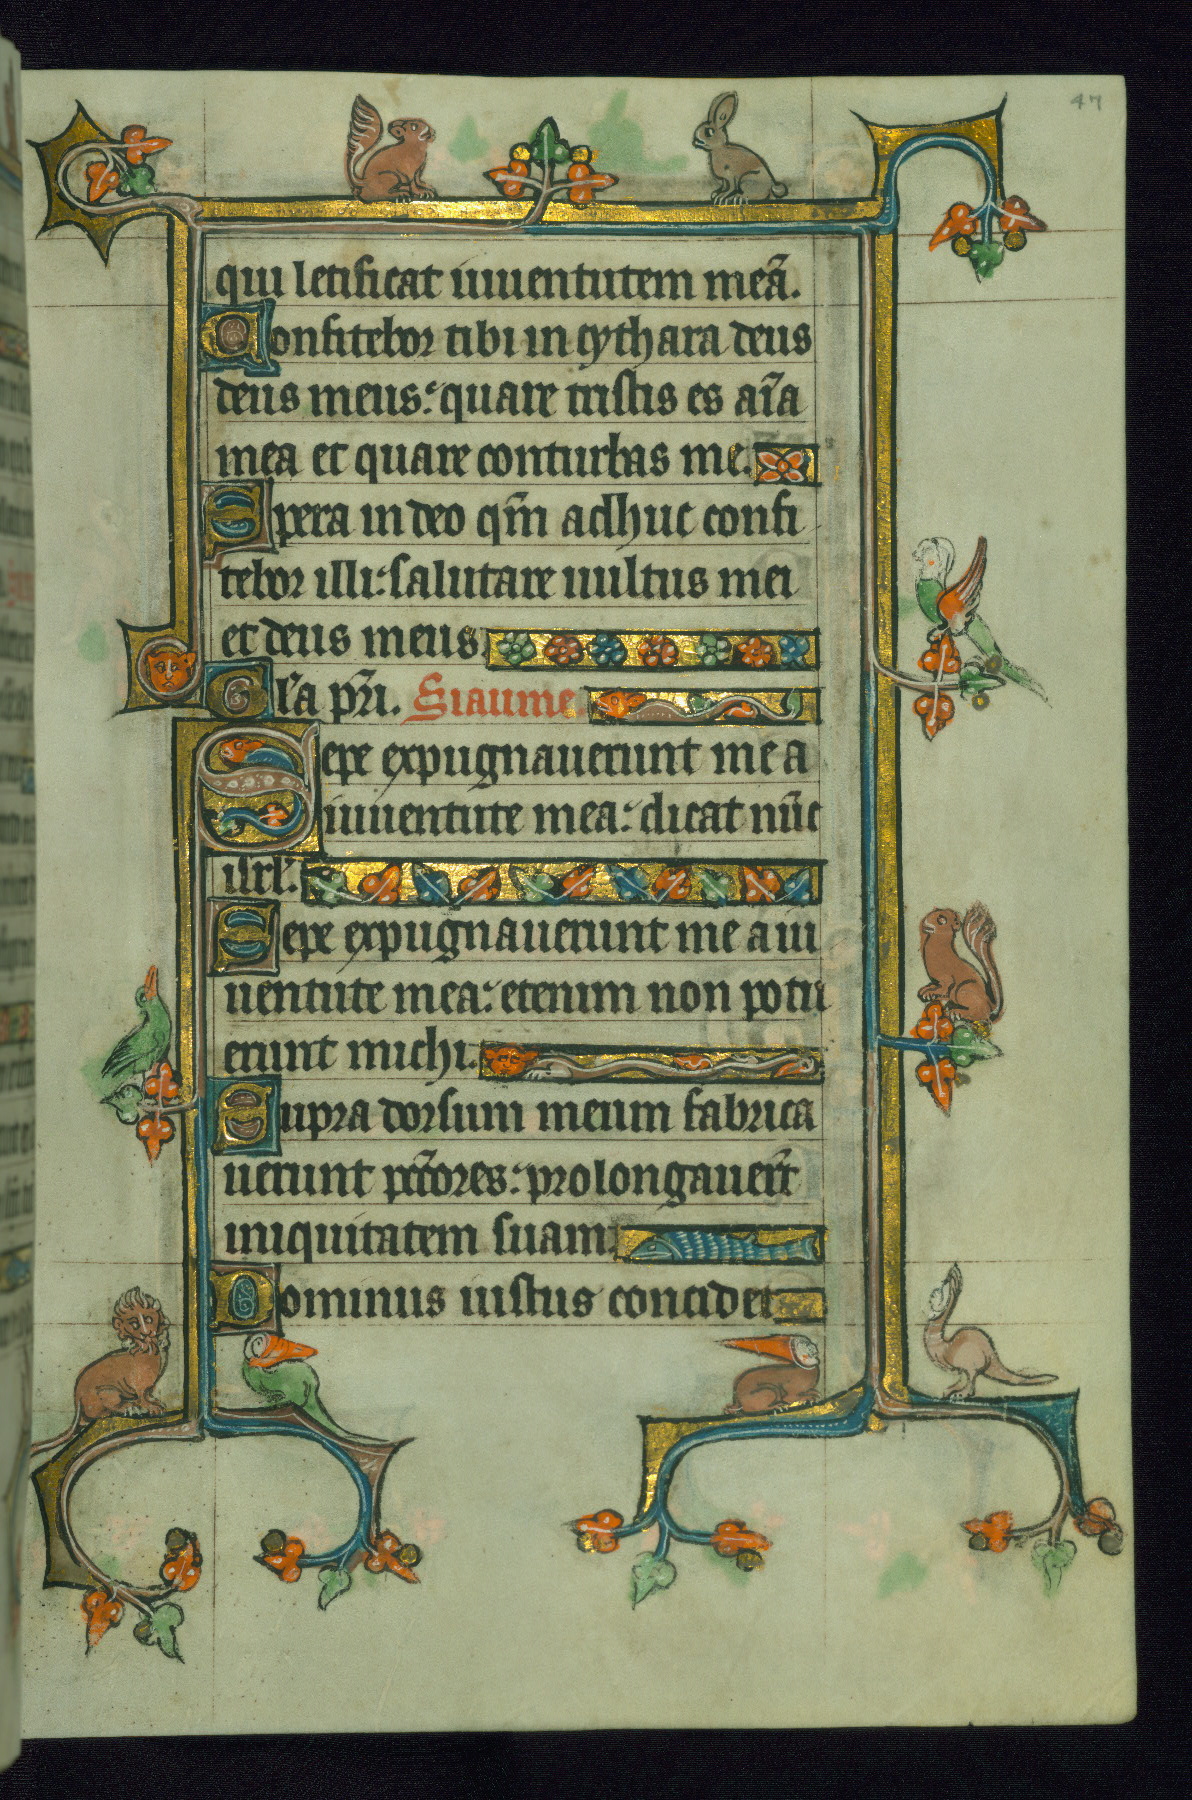 47
qui letificat iuuentutem meā.
Confitebor tibi in cythara deus
deus meus: quare tristis es aīa
mea et quare conturbas me.
Spera in deo qm̄ adhuc confi
tebor illi: salutare uultus mei
et deus meus.
Gl'a pr̄i. Siaume
Sepe expugnauerunt me a
iuuentute mea: dicat nūc
isrl'.
Sepe expugnauerunt me a iu
uentute mea: etenim non potu
erunt michi.
Supra dorsum meum fabrica
uerunt pctōres: prolongauer̄t
iniquitatem suam.
Dominus iustus concidet